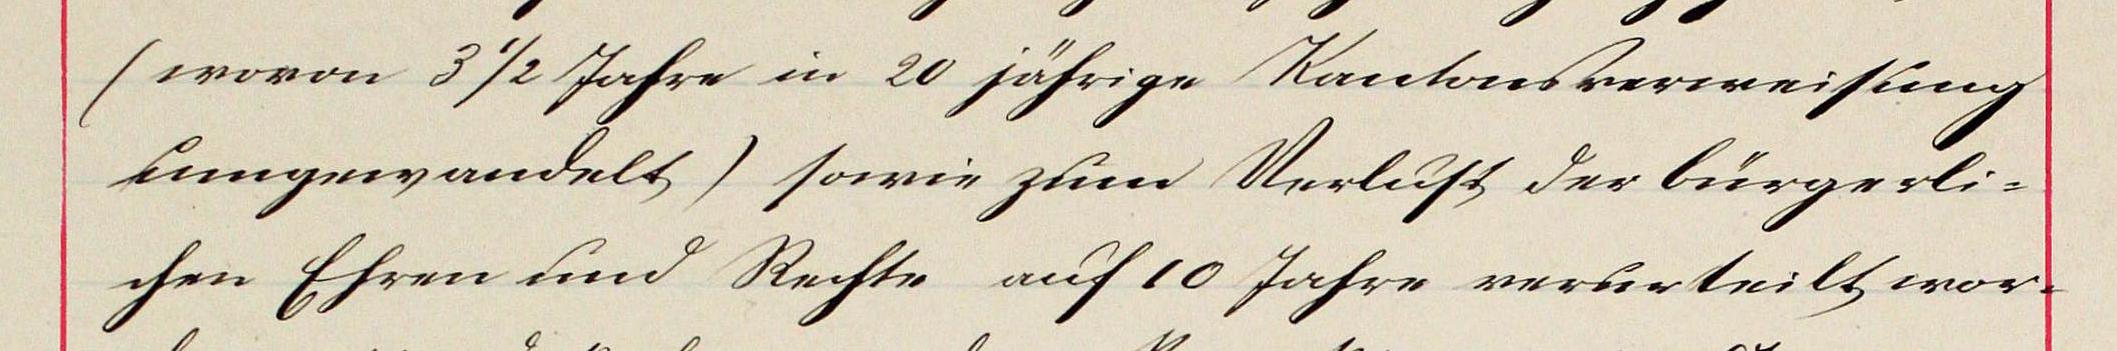 (wovon 3 1/2 Jahre in 20 jährige Kantonsverweisung
umgewandelt) sowie zum Verlust der bürgerli-
chen Ehren und Rechte auf 10 Jahre verurteilt wor-